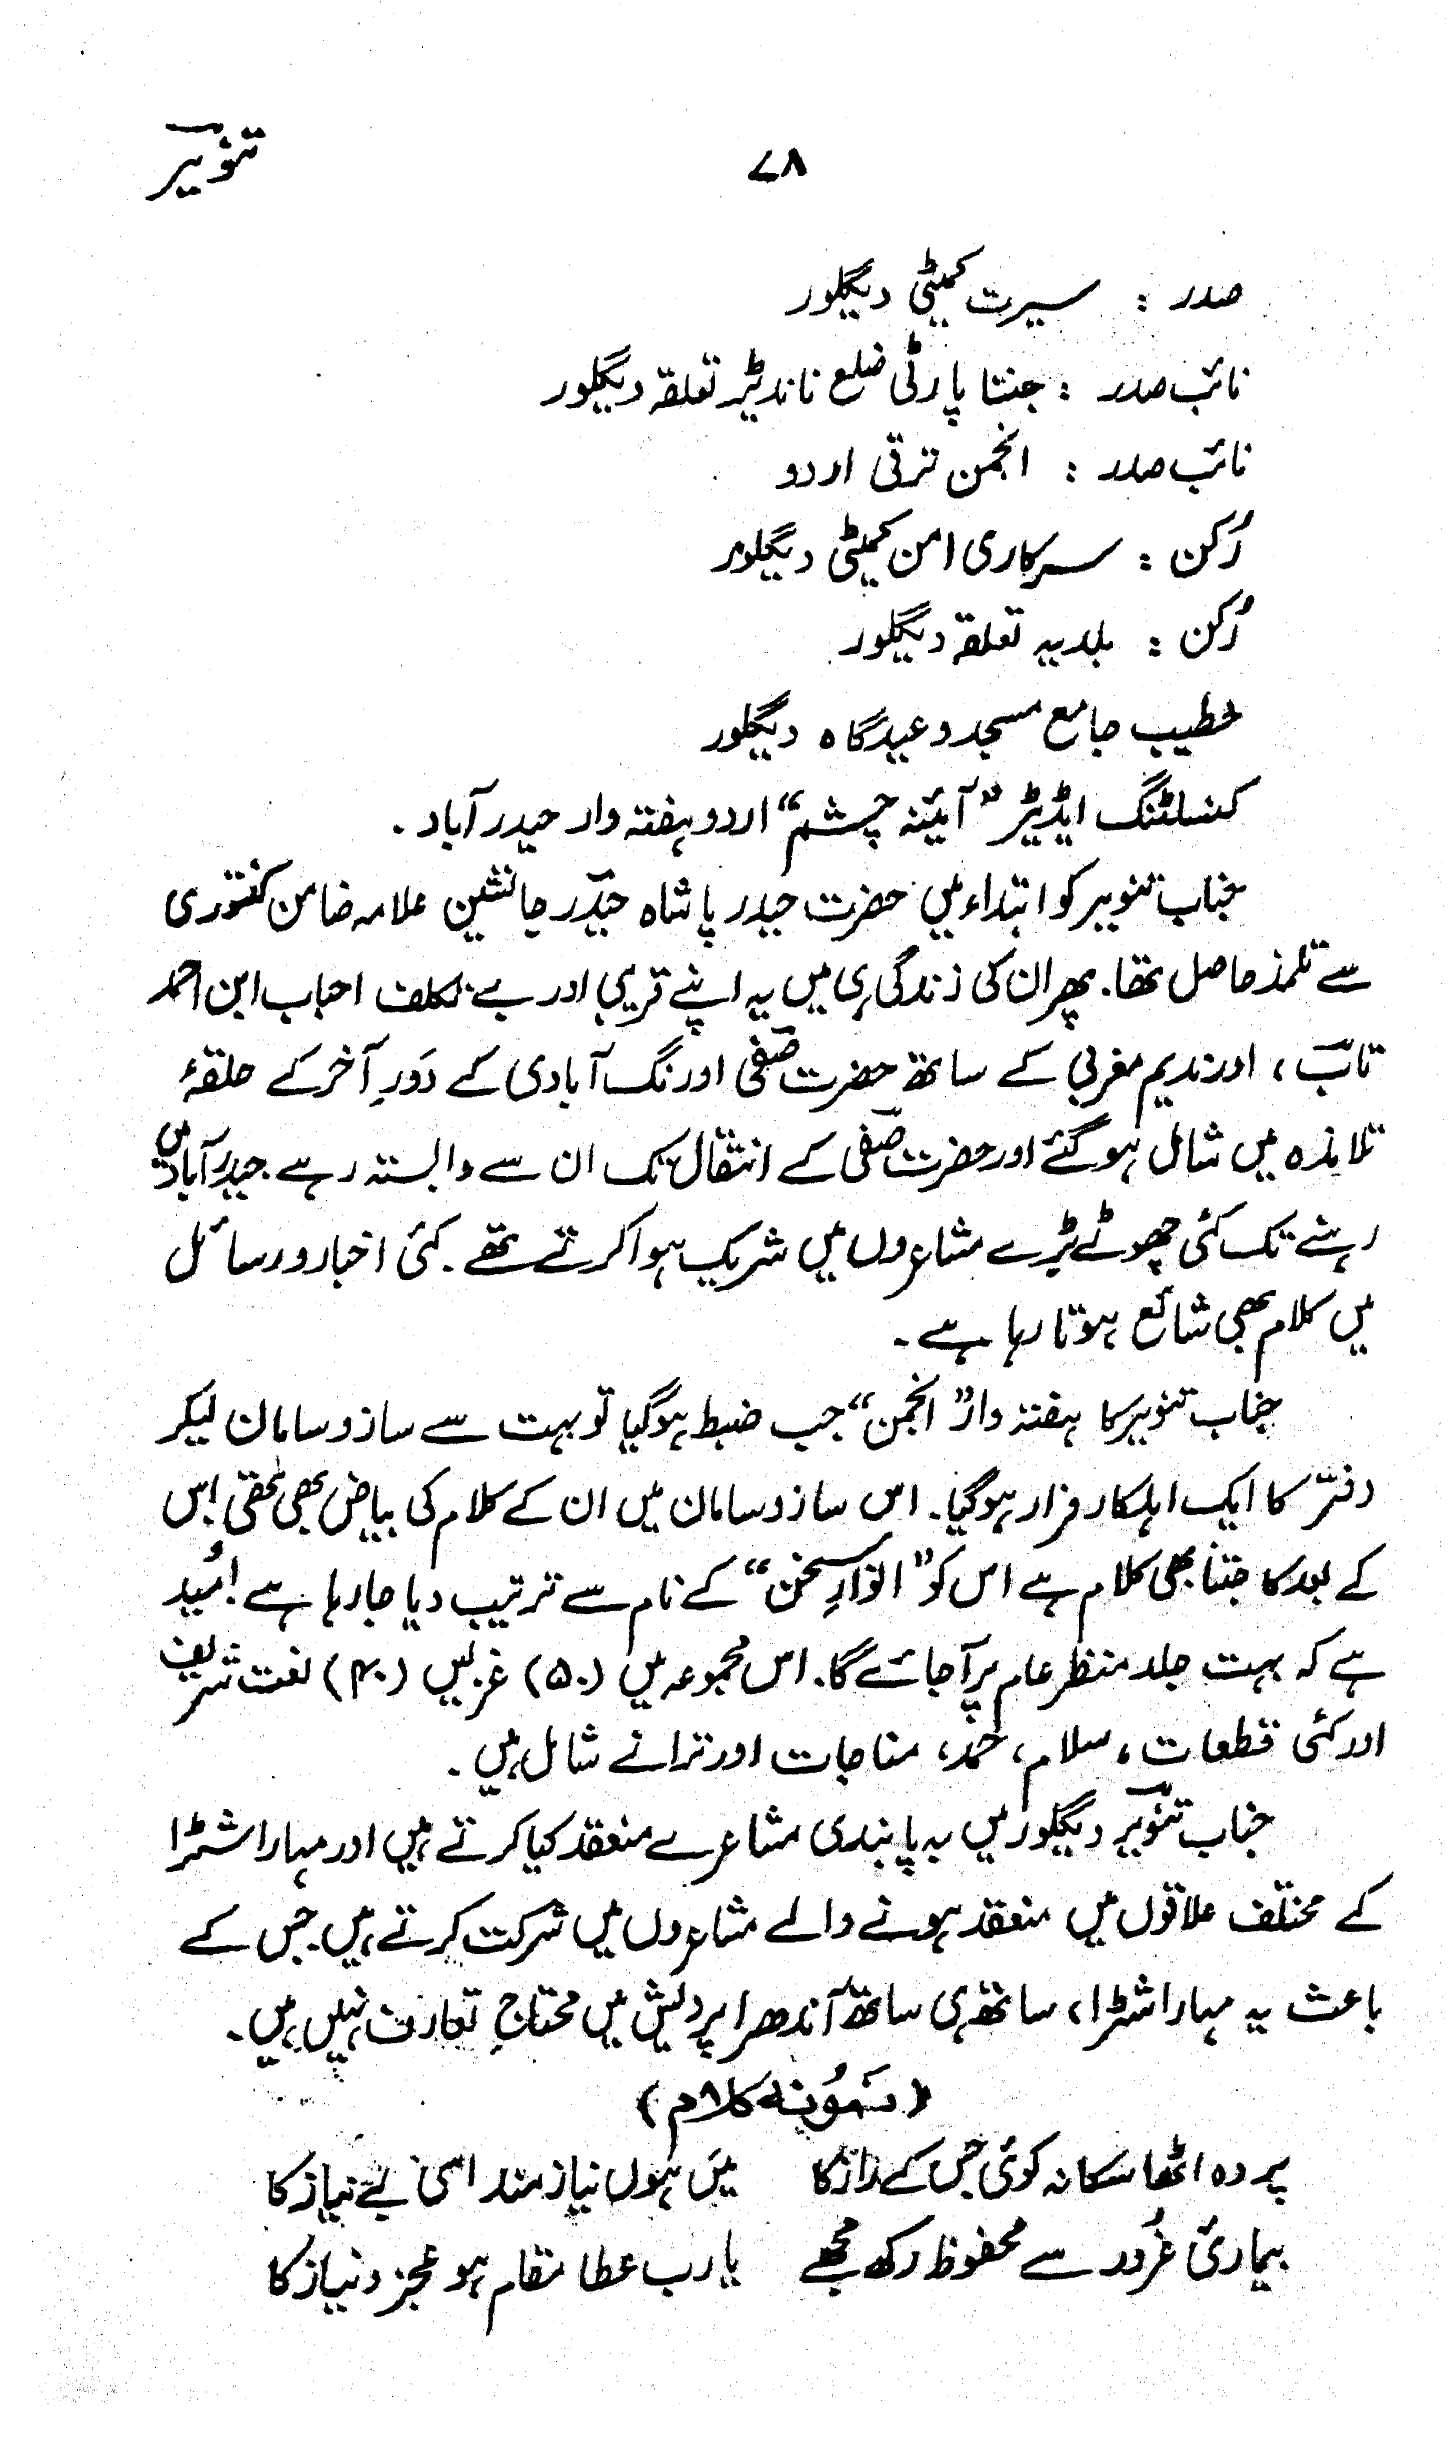 ۷۸
تنویر
صدر : سیرت کمیٹی دیگلور
نائب صدر : جنتا پارٹی ضلع ناندیڑ تعلقہ دیگلور
نائب صدر : انجمن ترقی اردو
رُکن : سرکاری امن کمیٹی دیگلور
رُکن : بلدیہ تعلقہ دیگلور
خطیب جامع مسجد و عیدگاہ دیگلور
کنسلٹنگ ایڈیٹر ”آئینہ چشم“ اردو ہفتہ وار حیدرآباد۔
جناب تنویر کو ابتداء میں حضرت حیدر پاشاہ حیدر جانشین علامہ ضامن کنتوری
سے تلمذ حاصل تھا۔ پھر ان کی زندگی ہی میں یہ اپنے قریبی اور بے تکلف احباب ابن احمد
تاب، اور ندیم مغربی کے ساتھ حضرت صفی اورنگ آبادی کے دَورِ آخر کے حلقۂ
تلامذہ میں شامل ہوگئے اور حضرت صفی کے انتقال تک ان سے وابستہ رہے حیدرآباد میں
رہنے تک کئی چھوٹے بڑے مشاعروں میں شریک ہوا کرتے تھے۔ کئی اخبار و رسائل
میں کلام بھی شائع ہوتا رہا ہے۔
جناب تنویر کا ہفتہ وار ”انجمن“ جب ضبط ہوگیا تو بہت سے ساز و سامان لیکر
دفتر کا ایک اہلکار فرار ہوگیا۔ اس ساز و سامان میں ان کے کلام کی بیاض بھی تھی اِس
کے بعد کا جتنا بھی کلام ہے اس کو ”انوارِ سخن“ کے نام سے ترتیب دیا جارہا ہے اُمید
ہے کہ بہت جلد منظر عام پر آجائے گا۔ اس مجموعہ میں (۵۰) غزلیں (۴۰) نعت شریف
اور کئی قطعات، سلام، حمد، مناجات اور ترانے شامل ہیں۔
جناب تنویر دیگلور میں بہ پابندی مشاعرے منعقد کیا کرتے ہیں اور مہاراشٹرا
کے مختلف علاقوں میں منعقد ہونے والے مشاعروں میں شرکت کرتے ہیں۔ جس کے
باعث یہ مہاراشٹرا، ساتھ ہی ساتھ آندھرا پردیش میں محتاجِ تعارف نہیں ہیں۔
(نمونۂ کلام)
پردہ اٹھا سکا نہ کوئی جس کے راز کا میں ہوں نیاز مند اسی بے نیاز کا
بیماریٔ غرور سے محفوظ رکھ مجھے یارب عطا مقام ہو عجز و نیاز کا